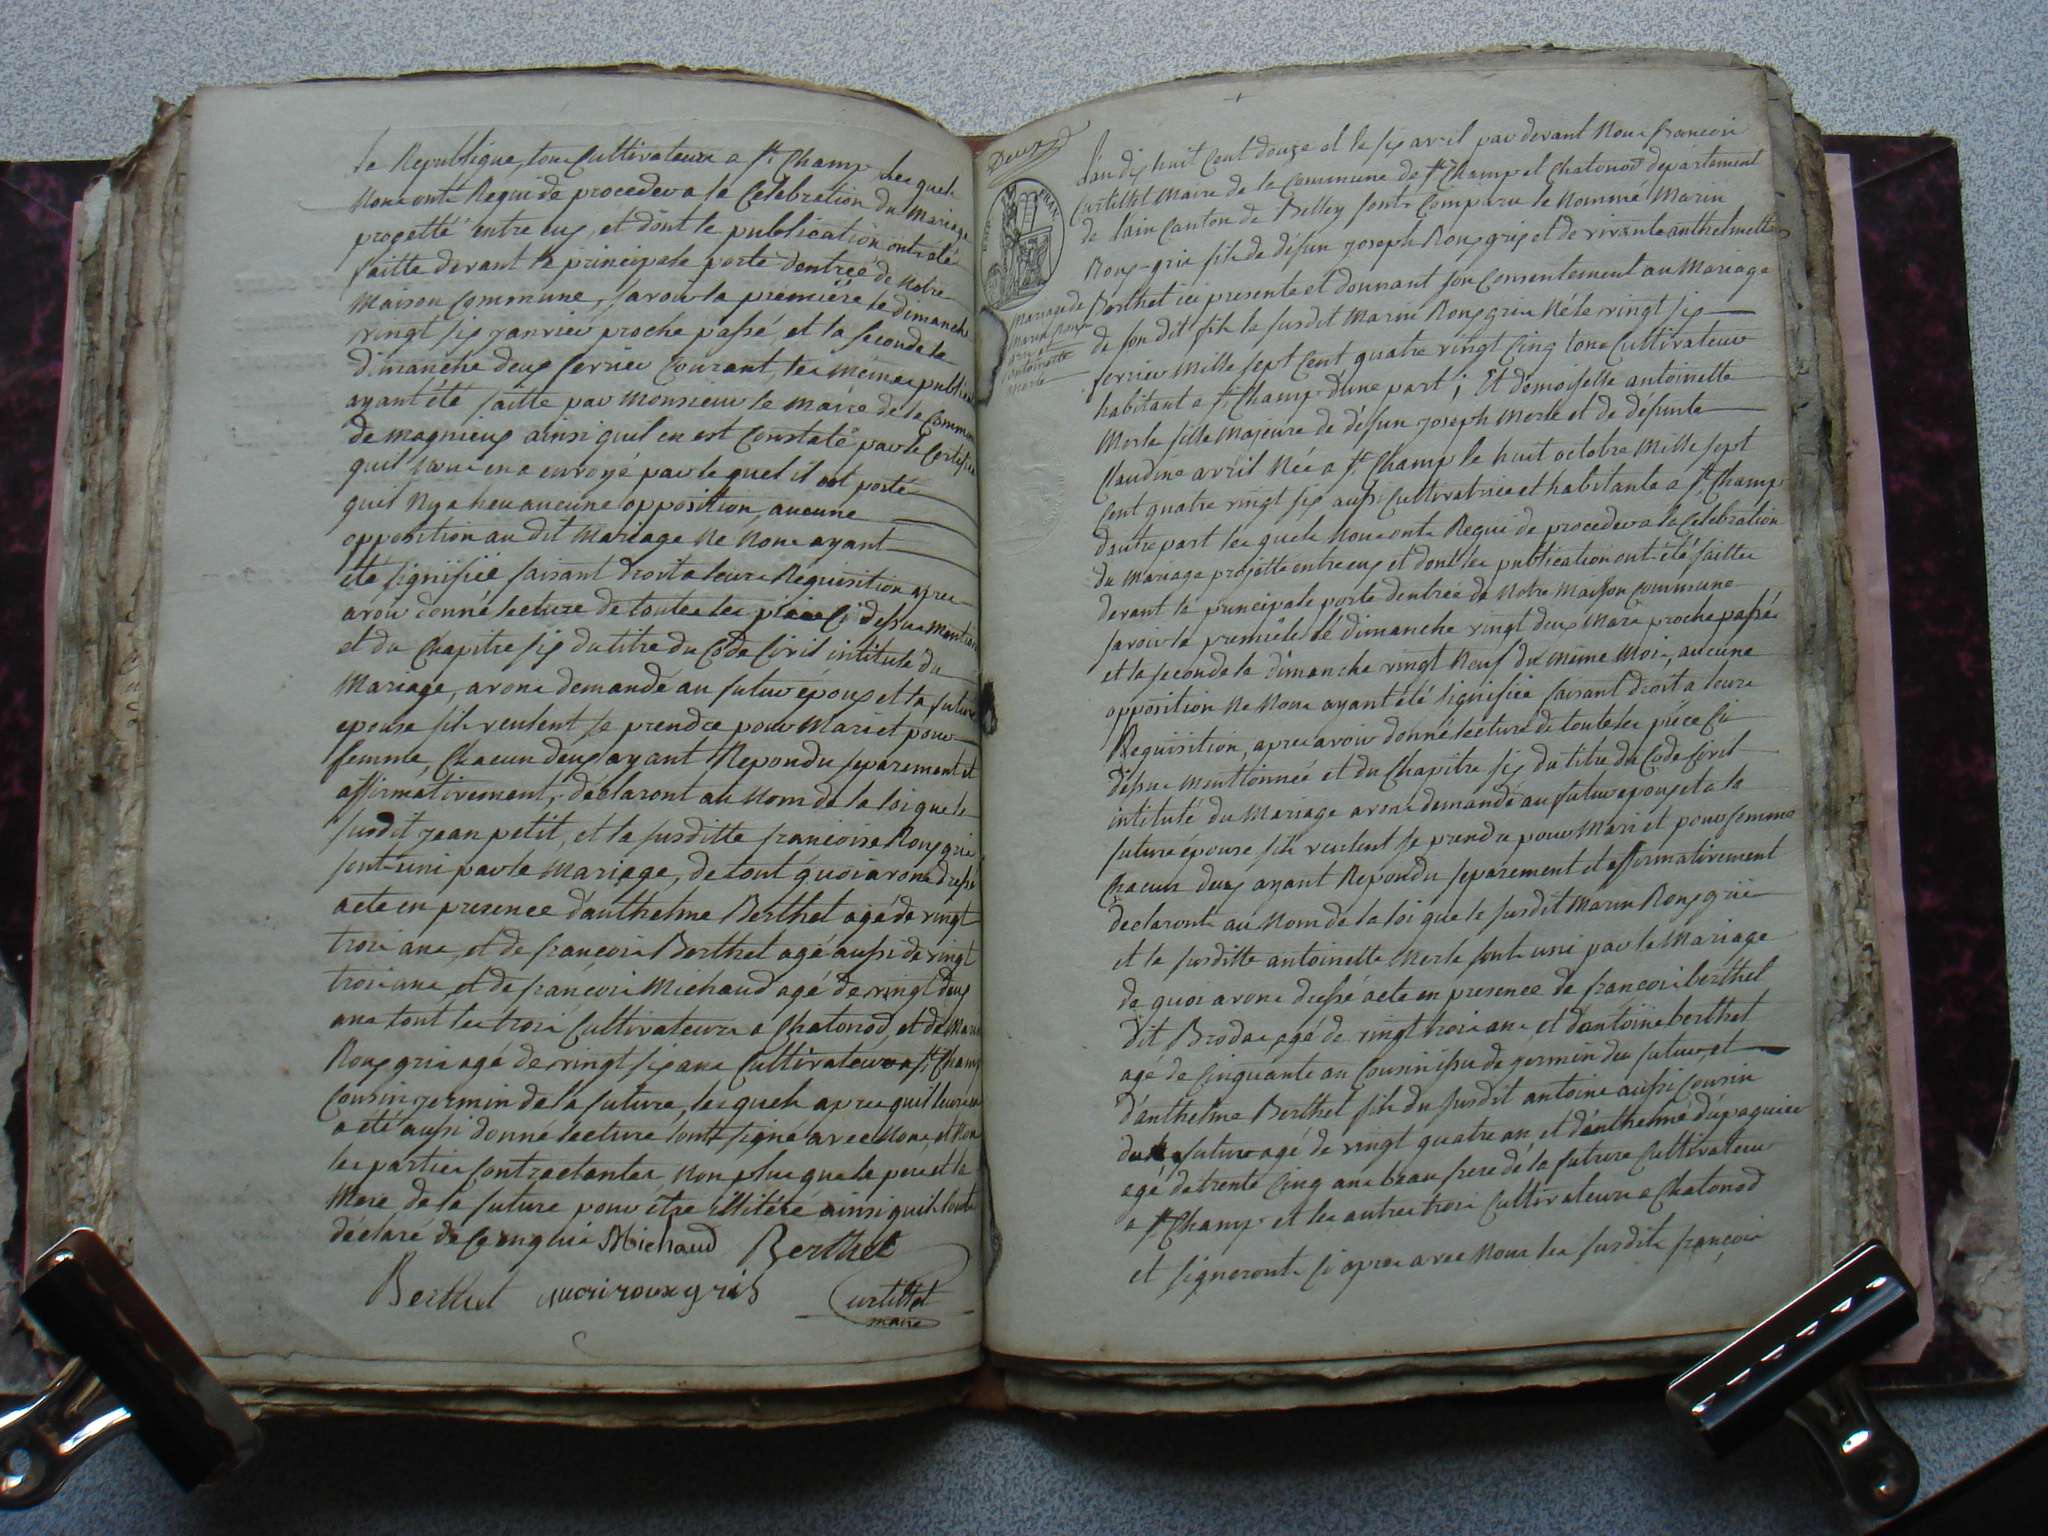 la Republique, tous Cultivateurs a St Champ les quels
Nous ont Requi de proceder a la Celebration du Mariage
progetté entre eux, et dont les publications ont été
faitte devant la principale porte dentreé de Notre
Maison Commune, savoir la premiére le dimanche
vingt six janvier proche passé, et la seconde le
dimanche deux fevrier Courant, les mémes public
ayant été faitte par Monsieur le Maire de la Commune
de magnieux ainsi quil en est Constaté par le Certificat
quil nous en a envoyé par le quel il est porté
quil Ny a heu aucune opposition, aucune
opposition au dit Mariage Ne Nous ayant
été signifiée faisant droit a leurs Requisition apres
avoir donné lecture de toutes les piéces Ci dessus Mentionné
et du Chapitre six du titre du Code Civil intitulé du
Mariage, avons demandé au futur époux et la future
epouse sils veulent se prendre pour Mari et pour
femme, Chacun deux ayant Repondu separement et
affirmativement, déclarons au Nom de la loi que le
susdit jean petit, et la susditte francoise Roux gris
sont uni par le Mariage, de tout quoi avons dressé
acte en presence d'anthelme Berthet agé de vingt
trois ans, et de francois Berthet agé aussi de vingt
trois ans, et de francois Michaud agé de vingt deux
ans tout les trois Cultivateurs a Chatonod, et de Marin
Roux gris agé de vingt six ans Cultivateur a St Champ
Cousin germin de la future, les quels apres quil leurs en
a été aussi donné lecture sont signé avec Nous, et Non
les parties Contractantes, Non plus que le pere et la
Mere de la future pour être illitéré ainsi quils lont
déclaré de Ce enquis Michaud Berthet
Berthet marirouxgris Curtillet
maire
Deux
Mariage de
Marin Roux
gris et
antoinette
Merle
L'an dix huit Cent douze et le six avril par devant Nous francois
Curtillet Maire de la Commune de St Champ et Chatonod departement
de lain Canton de Belley sonts Comparu le Nommé Marin
Roux-gris fils de défun joseph Roux gris et de vivante anthelmette
Berthet ici presente et donnant son Consentement au Mariage
de son dit fils le susdit Marin Roux gris Né le vingt six
fevrier Mille sept Cent quatre vingt Cinq tous Cultivateur
habitant a St Champ d'une part ; Et demoiselle antoinette
Merle fille Majeure de défun joseph Merle et de défunte
Claudine avril Née a St Champ le huit octobre Mille sept
Cent quatre vingt six aussi Cultivatrice et habitante a St Champ
dautre part les quels Nous ont Requi de proceder a la Celebration
du Mariage projetté entre eux et dont les publication ont été faittes
devant la principale porte dentrée de Notre Maison Commune
savoir la premiére lé dimanche vingt deux Mars proche passé
et la seconde le dimanche vingt Neuf du méme Mois, aucune
opposition Ne Nous ayant été signifiée faisant droit a leurs
Requisition, apres avoir donné lecture de toutes les piéce Ci
déssus mentionnée et du Chapitre six du titre du Code Civil
intitulé du Mariage avons demandé au futur epoux et a la
future épouse sils veulent se prendre pour Mari et pour femme
Chacun deux ayant Repondu separement et affirmativement
declarons au Nom de la loi que le susdit Marin Roux gris
et la susditte antoinette Merle sont uni par le Mariage
de quoi avons dressé acte en presence de francois berthet
dit Brodas agé de vingt trois ans et d'antoine berthet
agé de Cinquante an Cousin issu de germin du futur, et
d'anthelme Berthet fils du susdit antoine aussi Cousin
du futur agé de vingt quatre an, et d'anthelme dépaquier
agé de trente Cinq ans beau frere de la future Cultivateur
a St Champ et les autres trois Cultivateurs a Chatonod
et signeronts Ci apres avec Nous les susdits francois